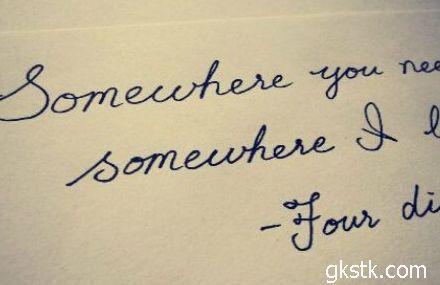 Somewhere you nee
somewhere I l
-Four di
gkstk.com